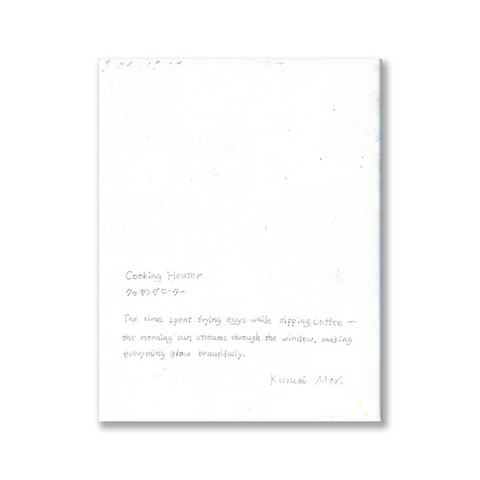 Cooking Heater
クッキングヒーター
The time spent frying eggs while sipping coffee —
the morning sun streams through the window, making
everything glow beautifully.
Kurumi Mori